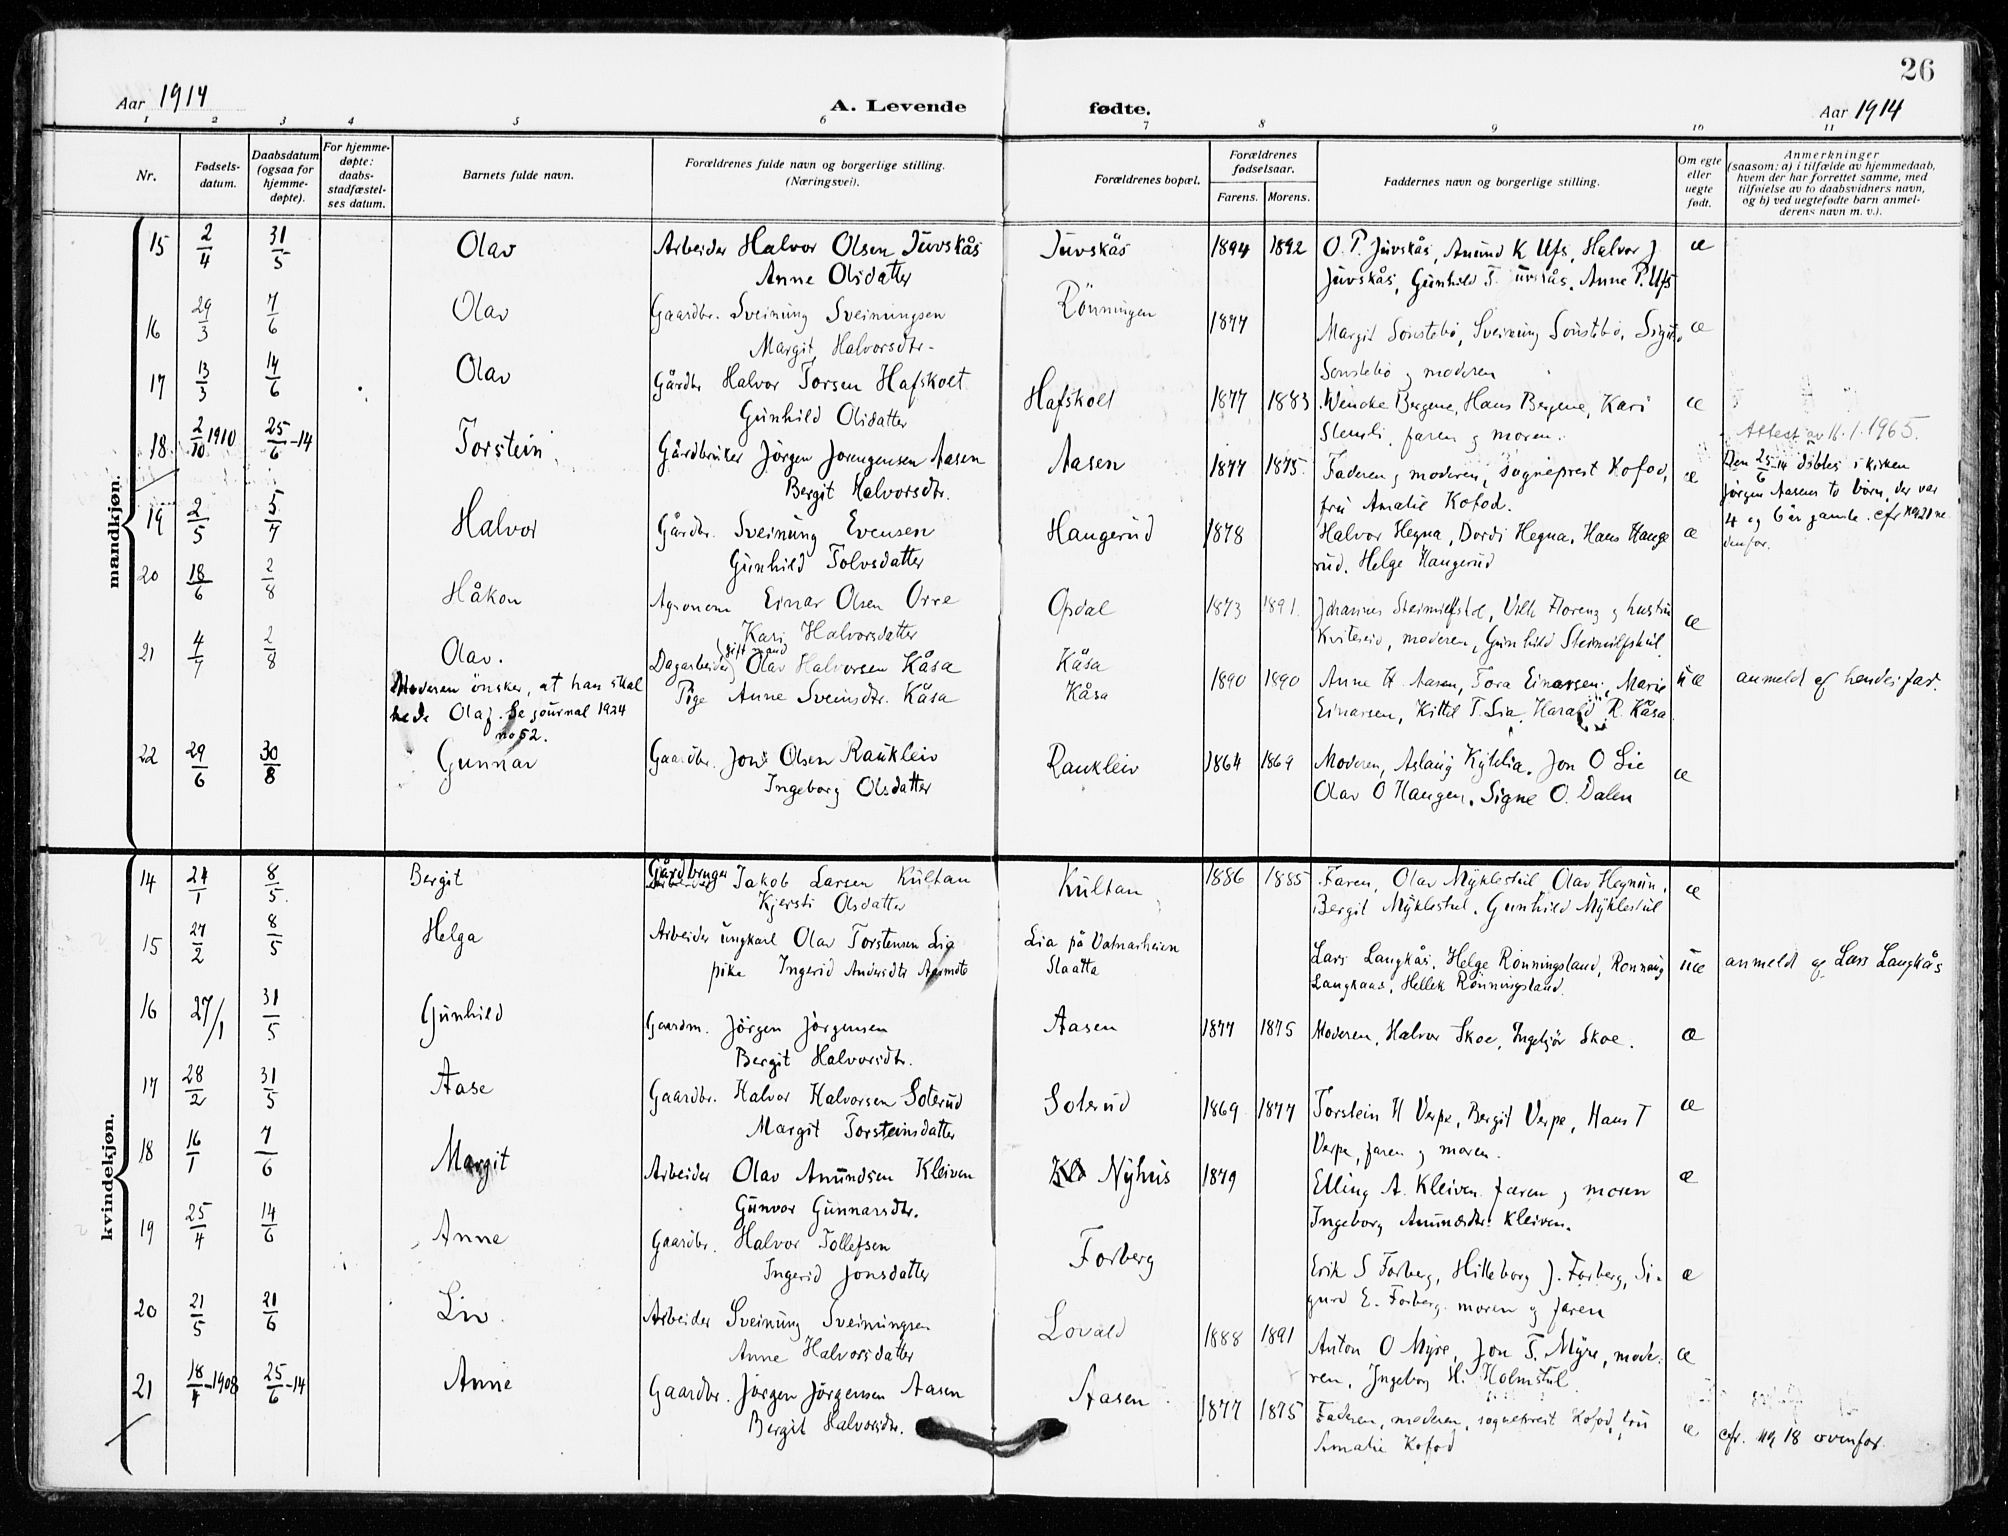 26
Aar 1914
A. Levende fødte.
Aar 1914
1 2 3 4 5 6 7 8 9 10 11
Nr. Fødsels-datum. Daabsdatum (ogsaa for hjemme-døpte). For hjemme-døpte: daabs-stadfæstel-ses datum. Barnets fulde navn. Forældrenes fulde navn og borgerlige stilling. (Næringsvei). Forældrenes bopæl. Forældrenes fødselsaar. Farens. Morens. Faddernes navn og borgerlige stilling. Om egte eller uegte født. Anmerkninger (saasom: a) i tilfælde av hjemmedaab, hvem der har forrettet samme, med tilføielse av to daabsvidners navn, og b) ved uegtefødte barn anmel-derens navn m. v.).
mandkjøn.
15 2/4 31/5 Olav Arbeider Halvor Olsen Juvskås Juvskås 1894 1892 O. P. Juvskås, Amund K Ufs, Halvor J. æ
Anne Olsdatter Juvskås, Gunhild T. Juvskås, Anne P. Ufs
16 29/3 7/6 Olav Gaardbr. Sveinung Sveinungsen Rönningen 1877 Margit Sönstebö, Sveinung Sönstebö, Sigurd æ
Margit Halvorsdtr. Sönstebö og moderen
17 13/3 14/6 Olav Gårdbr Halvor Torsen Hafskolt Hafskolt 1877 1883 Wencke Bergene, Hans Bergene, Kari æ
Gunhild Olsdatter faren og moren.
Attest av 11.1.1965.
18 2/10 1910 25/6-14 Torstein Gårdbruker Jörgen Jorengensen Aasen Aasen 1877 1875 Faderen og moderen, sogneprest Kofod, æ Den 25/6-14 döbtes i kirken
Bergit Halvorsdtr. fru Amalie Kofod. Jörgen Aasens to börn, der var
4 og 6 år gamle. cfr no 21 ne-
denfor.
19 2/5 5/7 Halvor Gårdbr. Sveinung Evensen Haugerud 1878 Halvor Hegna, Dordi Hegna, Hans Hauge æ
Gunhild Tolvsdatter rud, Helge Haugerud
20 18/6 2/8 Håkon Agronom Einar Olsen Orre Opdal 1873 1891. Johannes, Vilh Florenz og hustru æ
Kari Halvorsdatter Kviteseid, moderen, Gunhild
21 4/7 2/8 Olav. Dagarbeider (gift mand) Olav Halvorsen Kåsa Kåsa 1890 1890 Anne H. Aasen, Tora Einarsen, Marie uæ anmeldt af hendes far.
Moderen önsker, at han skal Pige Anne Sveinsdtr. Kåsa Kåsa Einarsen, Kittil T. Lia, Harald R. Kåsa.
hede Olaf. Se journal 1924
no 52.
22 29/6 30/8 Gunnar Gaardbr. Jon Olsen Raukleiv Raukleiv 1864 1869 Moderen, Aslaug Kytelia, Jon O Lie æ
Ingeborg Olsdatter Olav O Haugen, Signe O. Dalen
kvindekjøn.
14 24/1 8/5 Bergit Gårdbruger Jakob Larsen Kultan Kultan 1886 1885 Faren, Olav Myklestul, Olav Hegnin, æ
Kjersti Olsdatter Bergit Myklestul, Gunhild Myklestul
15 27/2 8/5 Helga Arbeider ungkarl Olav Torstensen Lia Lia på Vatnarheien Lars Langkås, Helge Rönningsland, Ronnaug uæ anmeldt af Lars Langkås
pike Ingerid Andersdtr Aasmote Slaatta Langkaas, Hellek Rönningsland.
16 27/1 31/5 Gunhild Gaardm. Jörgen Jörgensen Aasen 1877 1875 Moderen, Halvor Skoe, Ingebjör Skoe. æ
Bergit Halvorsdtr.
17 28/2 31/5 Aase Gaardbr. Halvor Halvorsen Soterud Soterud 1869 1877 Torstein H Verpe, Bergit Verpe, Hans T æ
Margit Torsteinsdatter Verpe, faren og moren.
18 16/1 7/6 Margit Arbeider Olav Amundsen Kleiven Nyhus 1879 Elling A. Kleiven faren og moren æ
Gunvor Gunnarsdtr. Ingeborg Amundsdtr. Kleiven.
19 25/4 14/6 Anne Gaardbr. Halvor Tollefsen Forberg Erik S Forberg, Hilleborg J. Forberg, Si- æ
Ingerid Jonsdatter gurd E. Forberg. moren og faren
20 21/5 21/6 Liv Arbeider Sveinung Sveinungsen Lovald 1888 1891 Anton O Myre, Jon T. Myre, mode- æ
Anne Halvorsdatter ren, Ingeborg H. Holmstul
21 18/4-1908 25/6-14 Anne Gaardbr. Jörgen Jörgensen Aasen Aasen 1877 1875 Faderen, moderen, sogneprest Kofod, fru æ cfr. no 18 ovenfor.
Bergit Halvorsdtr. Amalie Kofod